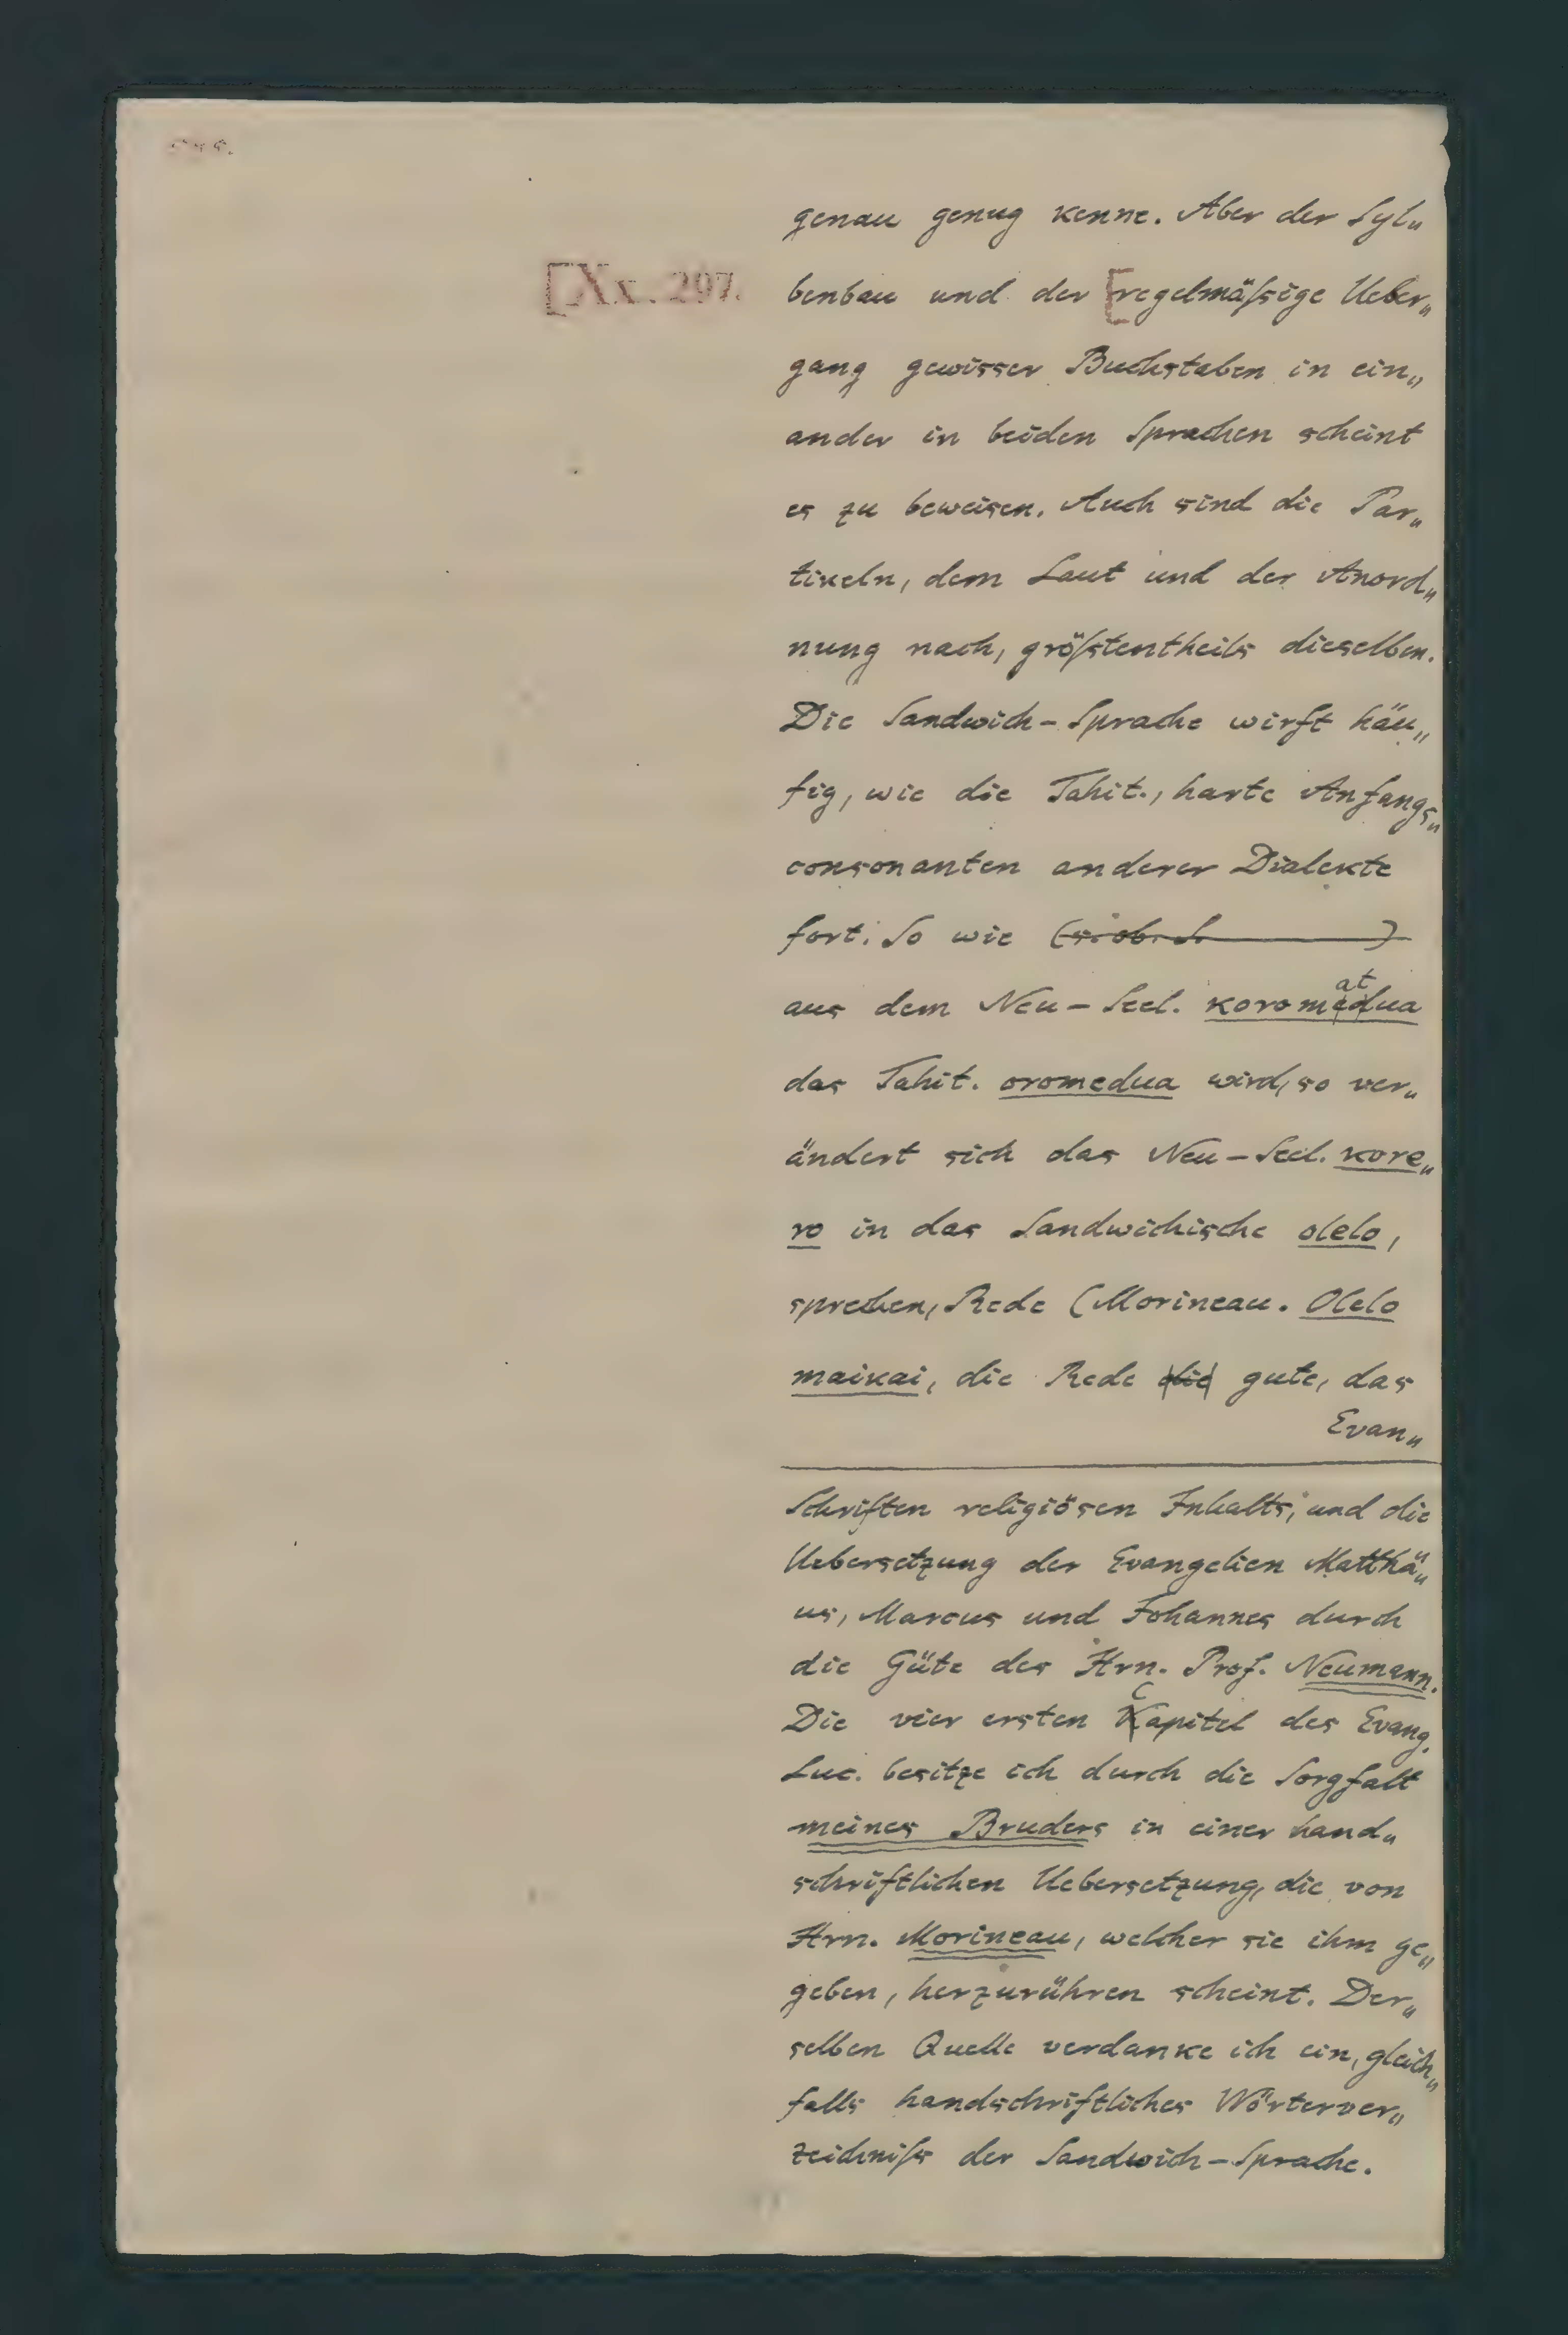 genau genug kenne. Aber der Syl„
[Xx. 297.
benbau und der [regelmäſsige Ueber„
gang gewisser Buchstaben in ein„
ander in beiden Sprachen scheint
es zu beweisen. Auch sind die Par„
tikeln, dem Laut und der Anord„
nung nach, gröſstentheils dieselben.
Die Sandwich-Sprache wirft häu„
fig, wie die Tahit., harte Anfangs„
consonanten anderer Dialekte
fort. So wie (s. ob. S. )
at
aus dem Neu-Seel. koromedua
das Tahit. oromedua wird, so ver„
ändert sich das Neu-Seel. kore„
ro in das Sandwichische olelo,
sprechen, Rede (Morineau. Olelo
maikai, die Rede die gute, das
Evan„
Schriften religiösen Inhalts, und die
Uebersetzung der Evangelien Matthä„
us, Marcus und Johannes durch
die Güte des Hrn. Prof. Neumann.
C
Die vier ersten Kapitel des Evang.
Luc. besitze ich durch die Sorgfalt
meines Bruders in einer hand„
schriftlichen Uebersetzung, die von
Hrn. Morineau, welcher sie ihm ge„
geben, herzurühren scheint. Der„
selben Quelle verdanke ich ein, gleich„
falls handschriftliches Wörterver„
zeichniſs der Sandwich-Sprache.